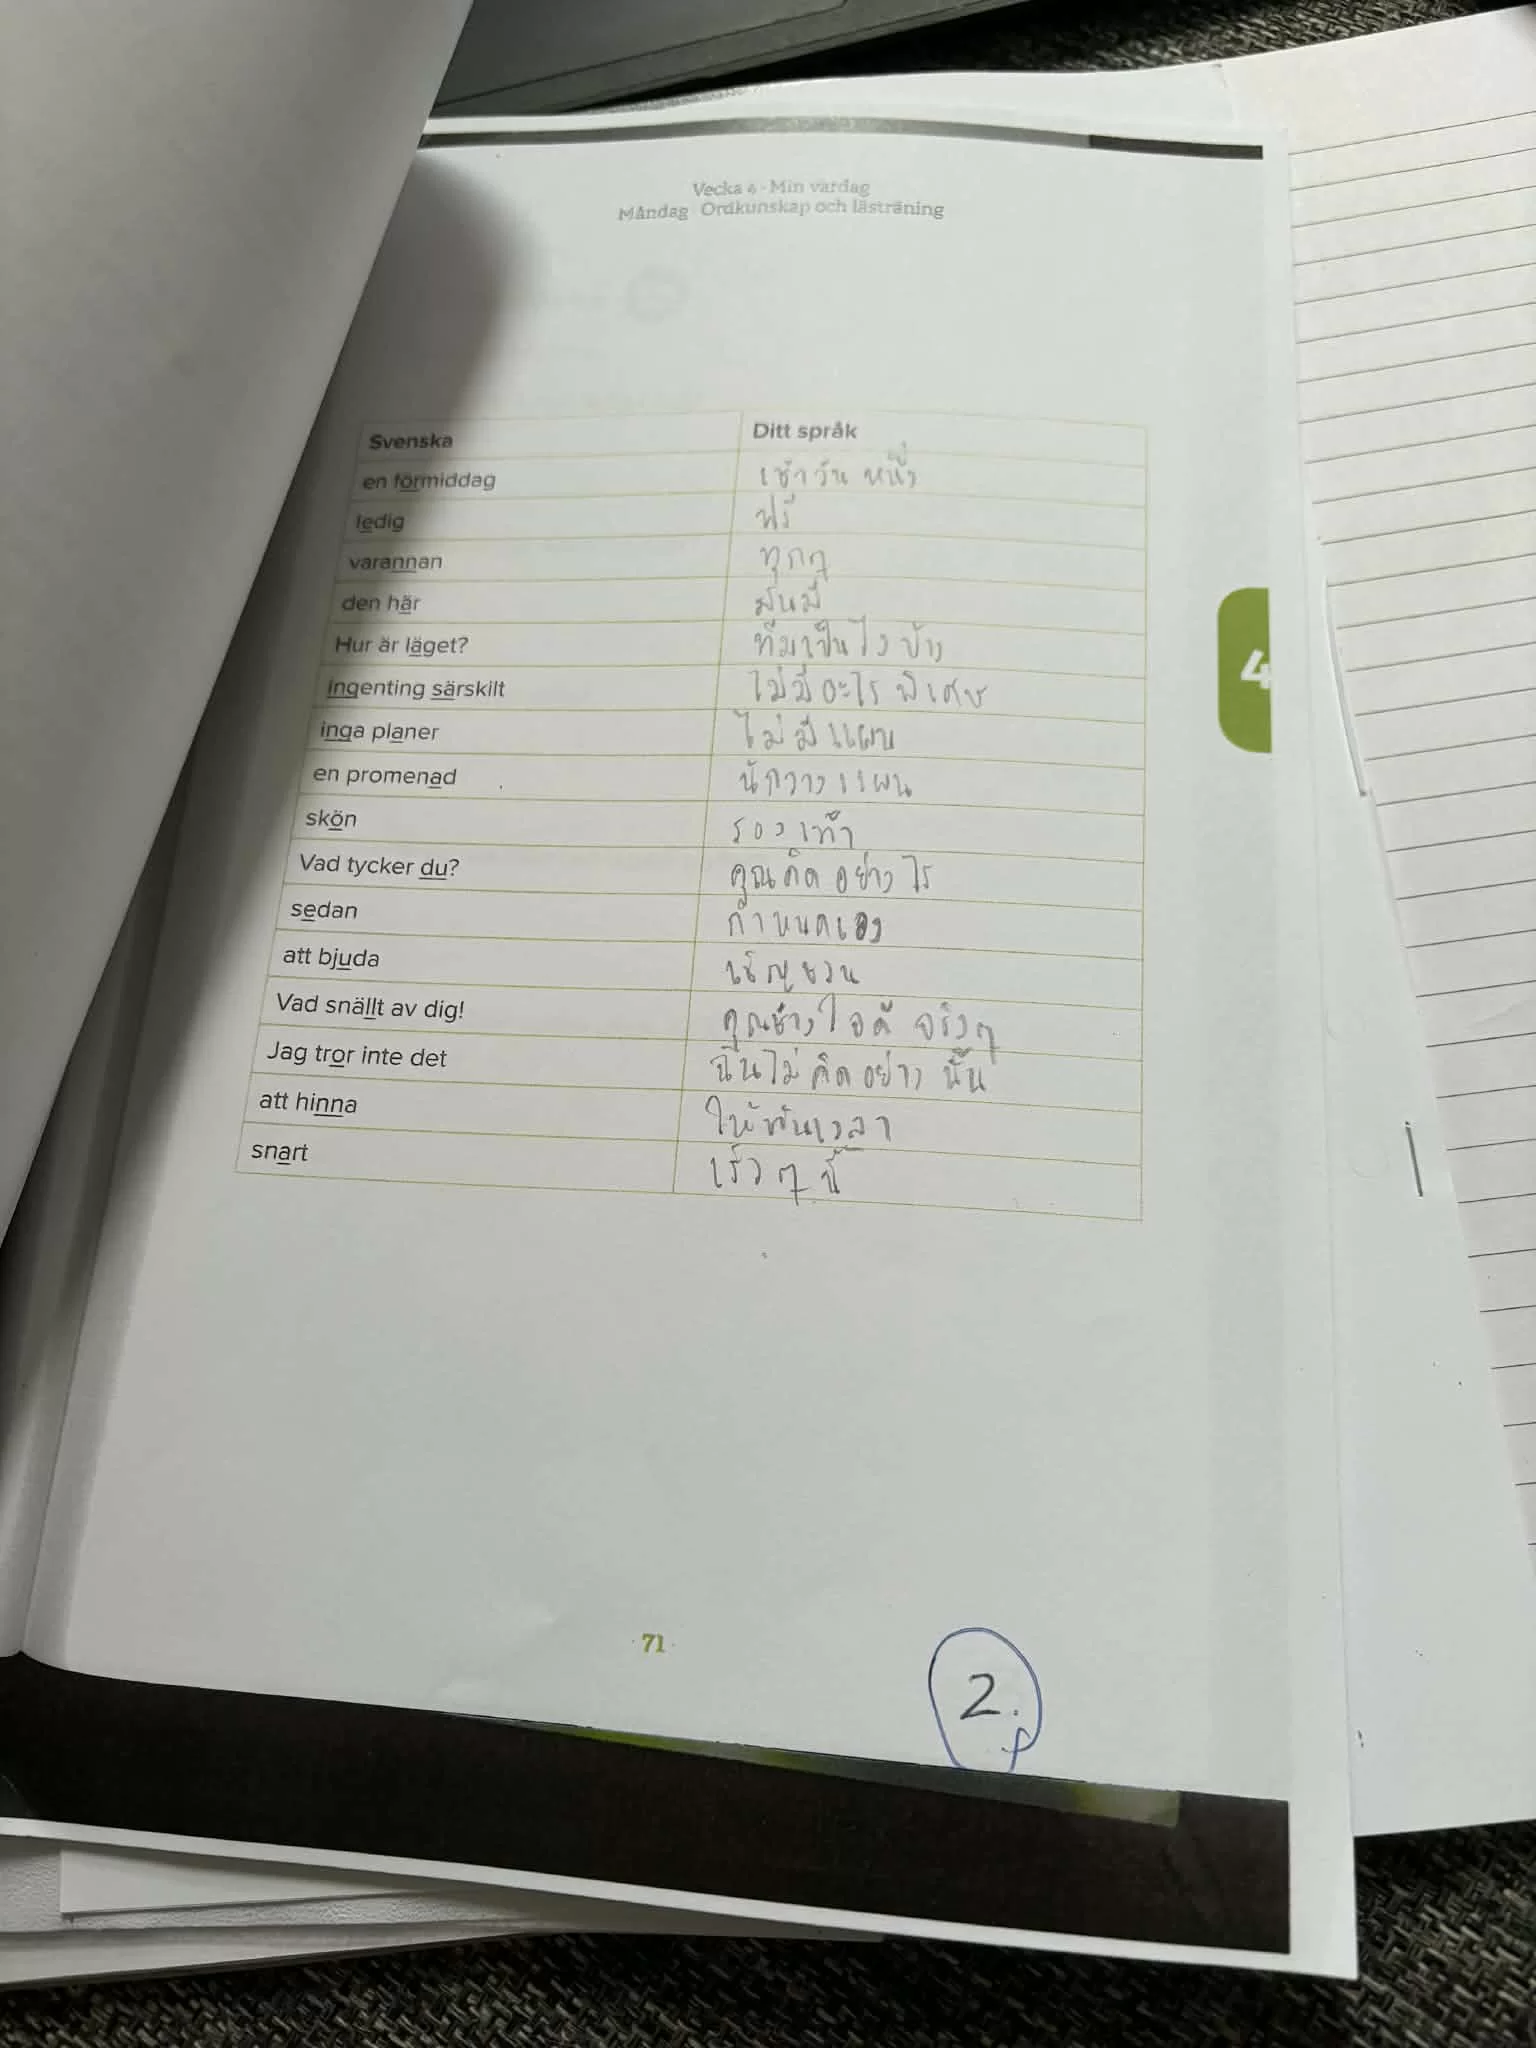 Vecka 4 · Min vardag
Måndag · Ordkunskap och lästräning
Svenska Ditt språk
en förmiddag เช้าวันหนึ่ง
ledig ฟรี
varannan ทุกๆ
den här มันมี
Hur är läget? ที่มาเป็นไงบ้าง
ingenting särskilt ไม่มีอะไรพิเศษ
inga planer ไม่มีแผน
en promenad นักวางแผน
skön รองเท้า
Vad tycker du? คุณคิดอย่างไร
sedan กำหนดเอง
att bjuda เชิญชวน
Vad snällt av dig! คุณช่างใจดีจริงๆ
Jag tror inte det ฉันไม่คิดอย่างนั้น
att hinna ให้ทันเวลา
snart เร็วๆนี้
4
· 71 ·
2.